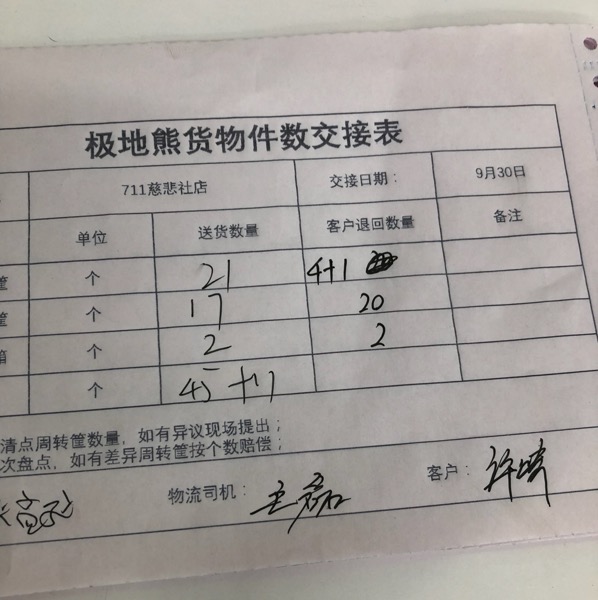 极地熊货物件数交接表
711慈悲社店 交接日期： 9月30日
单位 送货数量 客户退回数量 备注
筐 个 21 4+1
筐 个 17 20
箱 个 2 2
个 45 +11
清点周转筐数量，如有异议现场提出；
次盘点，如有差异周转筐按个数赔偿；
物流司机： 王磊 客户：